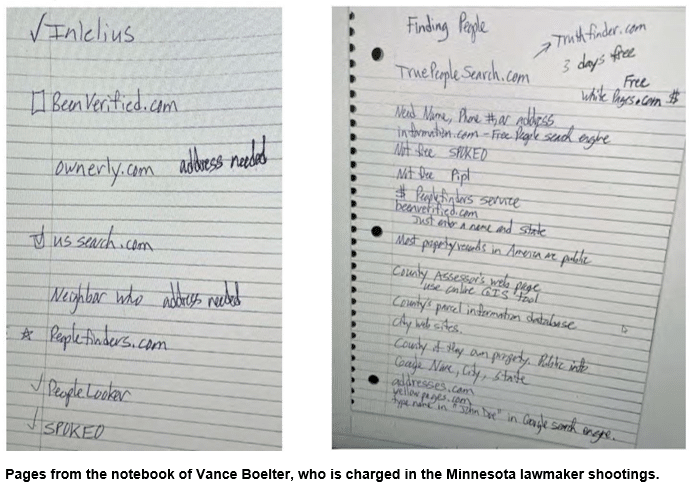 ✓ Intelius
☐ BeenVerified.com
ownerly.com address needed
☑ ussearch.com
Neighbor who address needed
☆ Peoplefinders.com
✓ PeopleLooker
✓ SPOKEO
Finding People
Truthfinder.com
3 days free
TruePeopleSearch.com
Free
White Pages.com $
Need Name, Phone #, or address
information.com - Free People search engine
Not free SPOKEO
Not free Pipl
$ Peoplefinders service
beenverified.com
Just enter a name and state
Most property records in America are public
County Assessor's web page
use online GIS tool
County's parcel information database
City web sites.
County if they own property. Public info
Google Name, City, state
addresses.com
yellowpages.com
type name in "John Doe" in Google search engine.
Pages from the notebook of Vance Boelter, who is charged in the Minnesota lawmaker shootings.